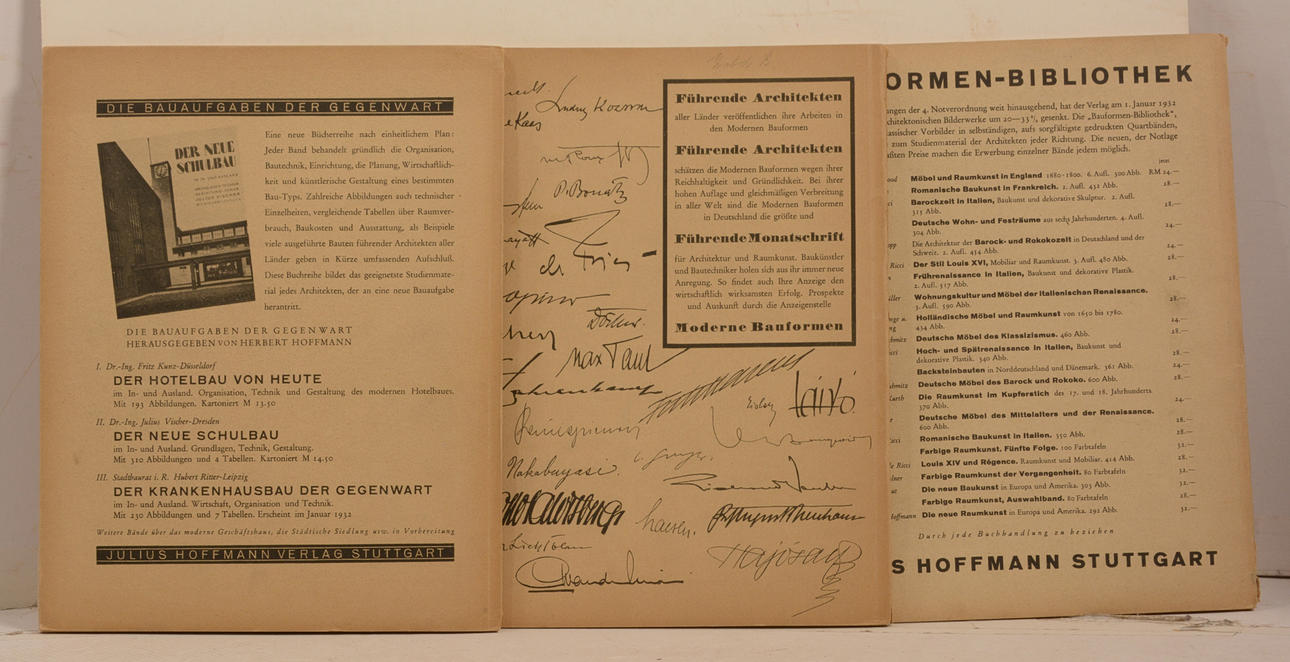 DIE BAUAUFGABEN DER GEGENWART
DER NEUE
SCHULBAU
Eine neue Bücherreihe nach einheitlichem Plan:
Jeder Band behandelt gründlich die Organisation,
Bautechnik, Einrichtung, die Planung, Wirtschaftlich-
keit und künstlerische Gestaltung eines bestimmten
Bau-Typs. Zahlreiche Abbildungen auch technischer
Einzelheiten, vergleichende Tabellen über Raumver-
brauch, Baukosten und Ausstattung, als Beispiele
viele ausgeführte Bauten führender Architekten aller
Länder geben in Kürze umfassenden Aufschluß.
Diese Buchreihe bildet das geeignetste Studienmate-
rial jedes Architekten, der an eine neue Bauaufgabe
herantritt.
DIE BAUAUFGABEN DER GEGENWART
HERAUSGEGEBEN VON HERBERT HOFFMANN
I. Dr.-Ing. Fritz Kunz-Düsseldorf
DER HOTELBAU VON HEUTE
im In- und Ausland. Organisation, Technik und Gestaltung des modernen Hotelbaues.
Mit 193 Abbildungen. Kartoniert M 13.50
II. Dr.-Ing. Julius Vischer-Dresden
DER NEUE SCHULBAU
im In- und Ausland. Grundlagen, Technik, Gestaltung.
Mit 310 Abbildungen und 4 Tabellen. Kartoniert M 14.50
III. Stadtbaurat i. R. Hubert Ritter-Leipzig
DER KRANKENHAUSBAU DER GEGENWART
im In- und Ausland. Wirtschaft, Organisation und Technik.
Mit 230 Abbildungen und 7 Tabellen. Erscheint im Januar 1932
Weitere Bände über das moderne Geschäftshaus, die Städtische Siedlung usw. in Vorbereitung
JULIUS HOFFMANN VERLAG STUTTGART
P. Bonatz
Max Taut
Nakabayasi.
haesen.
Führende Architekten
aller Länder veröffentlichen ihre Arbeiten in
den Modernen Bauformen
Führende Architekten
schätzen die Modernen Bauformen wegen ihrer
Reichhaltigkeit und Gründlichkeit. Bei ihrer
hohen Auflage und gleichmäßigen Verbreitung
in aller Welt sind die Modernen Bauformen
in Deutschland die größte und
Führende Monatschrift
für Architektur und Raumkunst. Baukünstler
und Bautechniker holen sich aus ihr immer neue
Anregung. So findet auch Ihre Anzeige den
wirtschaftlich wirksamsten Erfolg. Prospekte
und Auskunft durch die Anzeigenstelle
Moderne Bauformen
ORMEN-BIBLIOTHEK
ngen der 4. Notverordnung weit hinausgehend, hat der Verlag am 1. Januar 1932
chitektonischen Bilderwerke um 20—33%, gesenkt. Die „Bauformen-Bibliothek",
assischer Vorbilder in selbständigen, aufs sorgfältigste gedruckten Quartbänden,
zum Studienmaterial der Architekten jeder Richtung. Die neuen, der Notlage
ßten Preise machen die Erwerbung einzelner Bände jedem möglich.
jetzt
Möbel und Raumkunst in England 1680-1800. 6. Aufl. 500 Abb. RM 24.—
Romanische Baukunst in Frankreich. 2. Aufl. 432 Abb. 28.—
Barockzeit in Italien, Baukunst und dekorative Skulptur. 2. Aufl.
315 Abb. 28.—
Deutsche Wohn- und Festräume aus sechs Jahrhunderten. 4. Aufl.
304 Abb. 24.—
Die Architektur der Barock- und Rokokozeit in Deutschland und der
Schweiz. 2. Aufl. 454 Abb. 24.—
Ricci Der Stil Louis XVI, Mobiliar und Raumkunst. 3. Aufl. 480 Abb. 28.—
Frührenaissance in Italien, Baukunst und dekorative Plastik.
2. Aufl. 517 Abb. 28.—
Wohnungskultur und Möbel der Italienischen Renaissance.
3. Aufl. 590 Abb. 28.—
Holländische Möbel und Raumkunst von 1650 bis 1780.
434 Abb. 24.—
Deutsche Möbel des Klassizismus. 460 Abb. 28.—
Hoch- und Spätrenaissance in Italien, Baukunst und
dekorative Plastik. 340 Abb. 28.—
Backsteinbauten in Norddeutschland und Dänemark. 361 Abb. 24.—
Deutsche Möbel des Barock und Rokoko. 600 Abb. 28.—
Die Raumkunst im Kupferstich des 17. und 18. Jahrhunderts.
370 Abb. 24.—
Deutsche Möbel des Mittelalters und der Renaissance.
600 Abb. 28.—
Romanische Baukunst in Italien. 350 Abb. 28.—
Farbige Raumkunst. Fünfte Folge. 100 Farbtafeln 32.—
Ricci Louis XIV und Régence. Raumkunst und Mobiliar. 414 Abb. 28.—
Farbige Raumkunst der Vergangenheit. 80 Farbtafeln 32.—
Die neue Baukunst in Europa und Amerika. 303 Abb. 32.—
Farbige Raumkunst, Auswahlband. 80 Farbtafeln 28.—
Hoffmann Die neue Raumkunst in Europa und Amerika. 292 Abb. 32.—
Durch jede Buchhandlung zu beziehen
S HOFFMANN STUTTGART